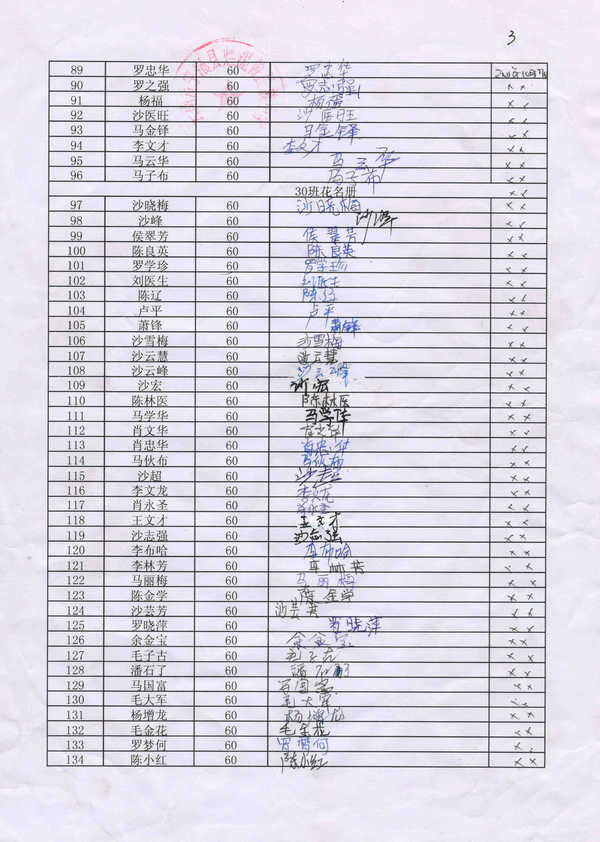 3
89 罗忠华 60 罗忠华
90 罗之强 60 罗志强 ××
91 杨福 60 杨福 ××
92 沙医旺 60 沙医旺 ××
93 马金铎 60 马金铎 ××
94 李文才 60 李文才 ××
95 马云华 60 马云华 ××
96 马子布 60 马子布 ××
30班花名册 ××
97 沙晓梅 60 沙晓梅 ××
98 沙峰 60 沙峰 ××
99 侯翠芳 60 侯翠芳 ××
100 陈良英 60 陈良英 ××
101 罗学珍 60 罗学珍 ××
102 刘医生 60 刘医生 ××
103 陈辽 60 陈辽 ××
104 卢平 60 卢平 ××
105 萧锋 60 萧锋 ××
106 沙雪梅 60 沙雪梅 ××
107 沙云慧 60 沙云慧 ××
108 沙云峰 60 沙云峰 ××
109 沙宏 60 沙宏 ××
110 陈林医 60 陈林医 ××
111 马学华 60 马学华 ××
112 肖文华 60 ××
113 肖忠华 60 肖忠华 ××
114 马伙布 60 马伙布 ××
115 沙超 60 沙超 ××
116 李文龙 60 李文龙 ××
117 肖永圣 60 ××
118 王文才 60 王文才 ××
119 沙志强 60 沙志强 ××
120 李布哈 60 李布哈 ××
121 李林芳 60 李林芳 ××
122 马丽梅 60 马丽梅 ××
123 陈金学 60 陈金学 ××
124 沙芸芳 60 沙芸芳 ××
125 罗晓萍 60 罗晓萍 ××
126 余金宝 60 余金宝 ××
127 毛子古 60 毛子古 ××
128 潘石了 60 潘石 ××
129 马国富 60 马国富 ××
130 毛大军 60 毛大军 ××
131 杨增龙 60 杨增龙 ××
132 毛金花 60 毛金花 ××
133 罗梦何 60 罗梦何 ××
134 陈小红 60 陈小红 ××